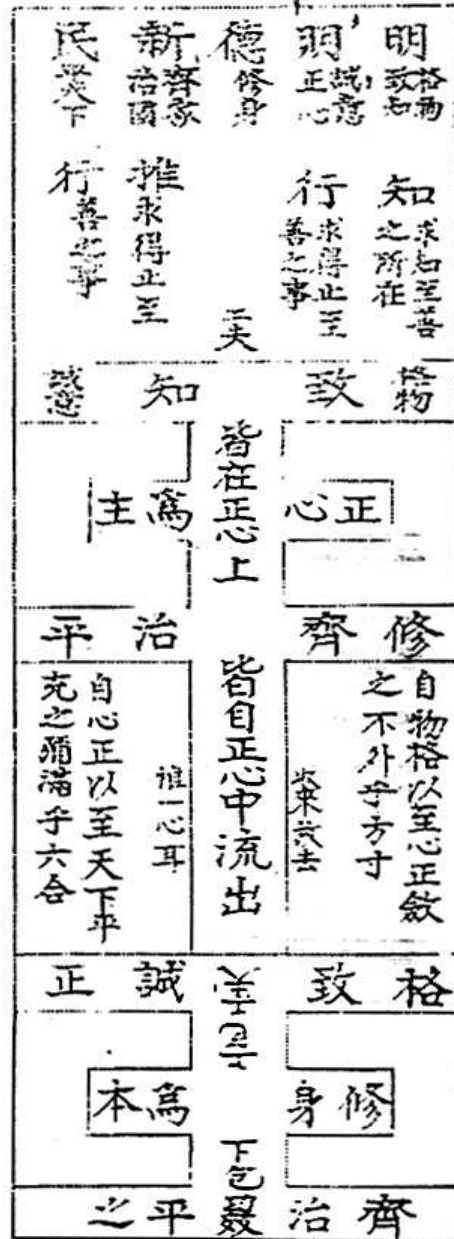 明 格物致知
明 誠意正心
德 修身
新 齊家治國
民 天下
知 求知至善之所在
行 求得止至善之事
工夫
推 求得止至
行 善之事
格物 致知 誠意
正心 爲主
皆在正心上
修齊 治平
自物格以至心正斂
之不外乎方寸
收來放去
皆自正心中流出
惟一心耳
自心正以至天下平
充之彌滿乎六合
格致 誠正
修身 爲本
下包
齊治 平之